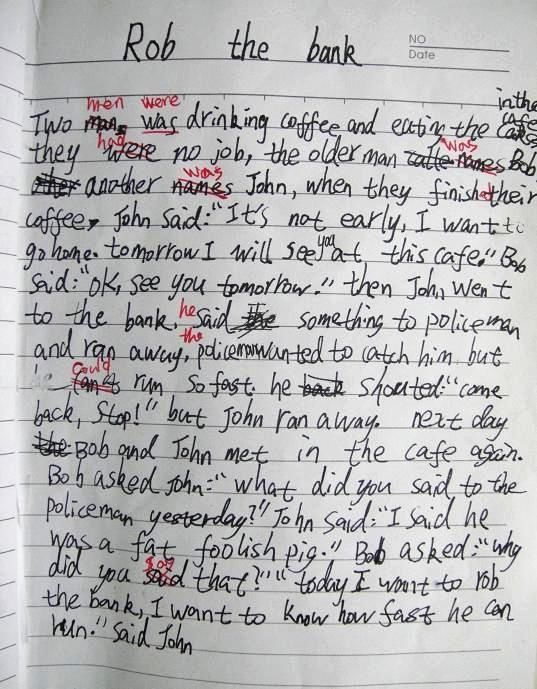 Rob the bank
NO
Date
in the
men were cafe
Two man was drinking coffee and eating the cakes
had was
they were no job, the older man names Bob
was
other another names John, when they finished their
coffee, John said: "It's not early, I want to
you
go home. tomorrow I will see at this cafe." Bob
said: "ok, see you tomorrow." then John went
he
to the bank, said the something to policeman
the
and ran away, policeman wanted to catch him but
could
run so fast. he back shouted: "come
back, stop!" but John ran away. next day
the Bob and John met in the cafe again.
Bob asked John: "what did you said to the
policeman yesterday?" John said: "I said he
was a fat foolish pig." Bob asked: "why
say
did you said that?" "today I want to rob
the bank, I want to know how fast he can
run." said John